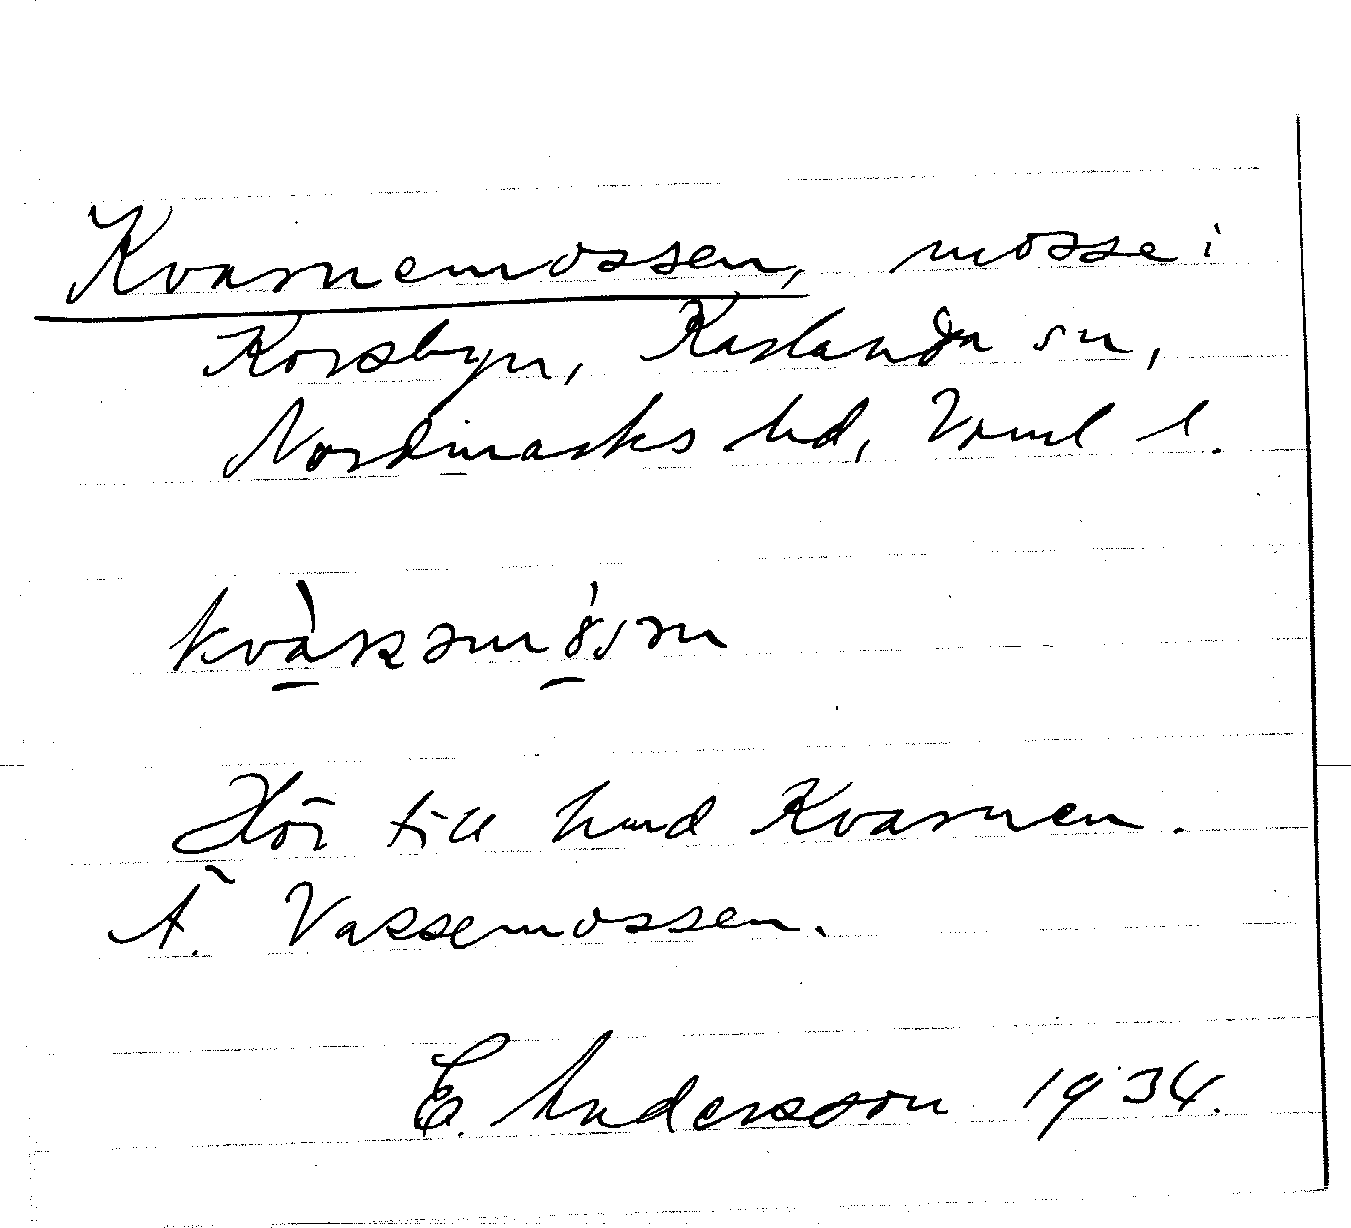 Kvarnemossen, mosse i
Korsbyn, Karlanda sn,
Nordmarks hd, Värml l.
Hör till hmd Kvarnen.
Ä. Vassemossen.
E. Andersson 1934.